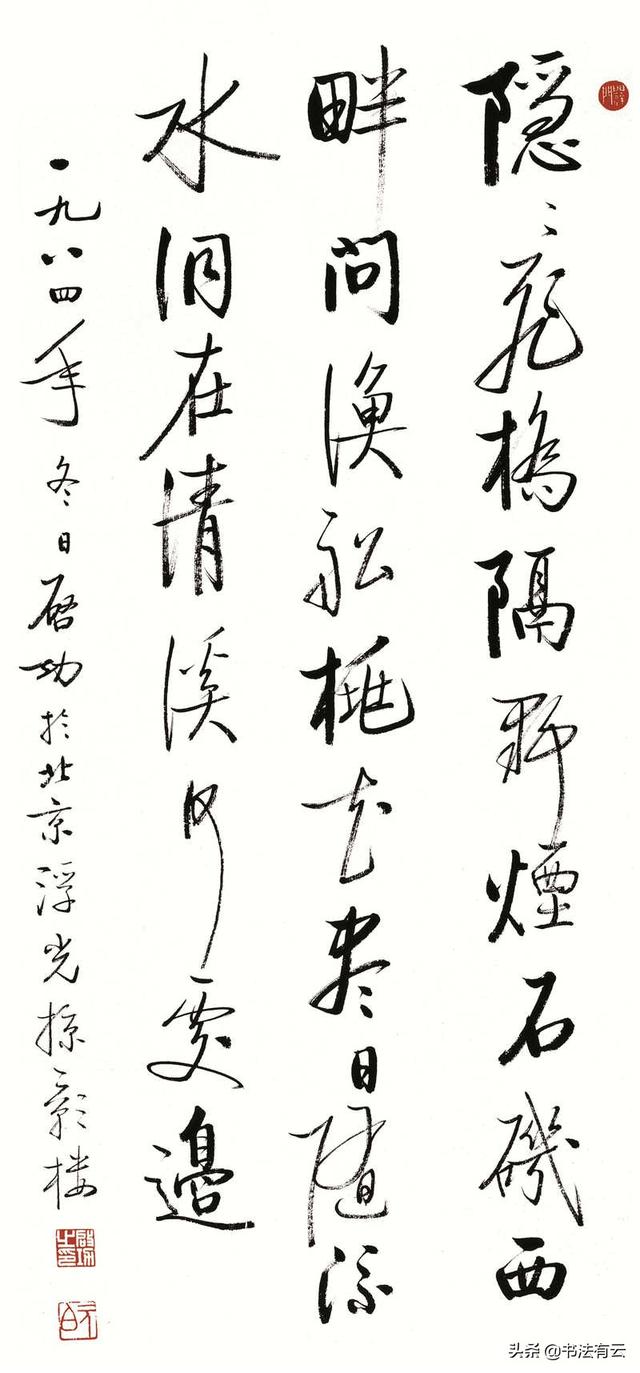 隱〻飛橋隔野煙石磯西
畔問漁船桃花盡日隨流
水洞在清溪何處邊
一九八四年冬日啓功於北京浮光掠影楼
啟功之印
元白
头条 @书法有云